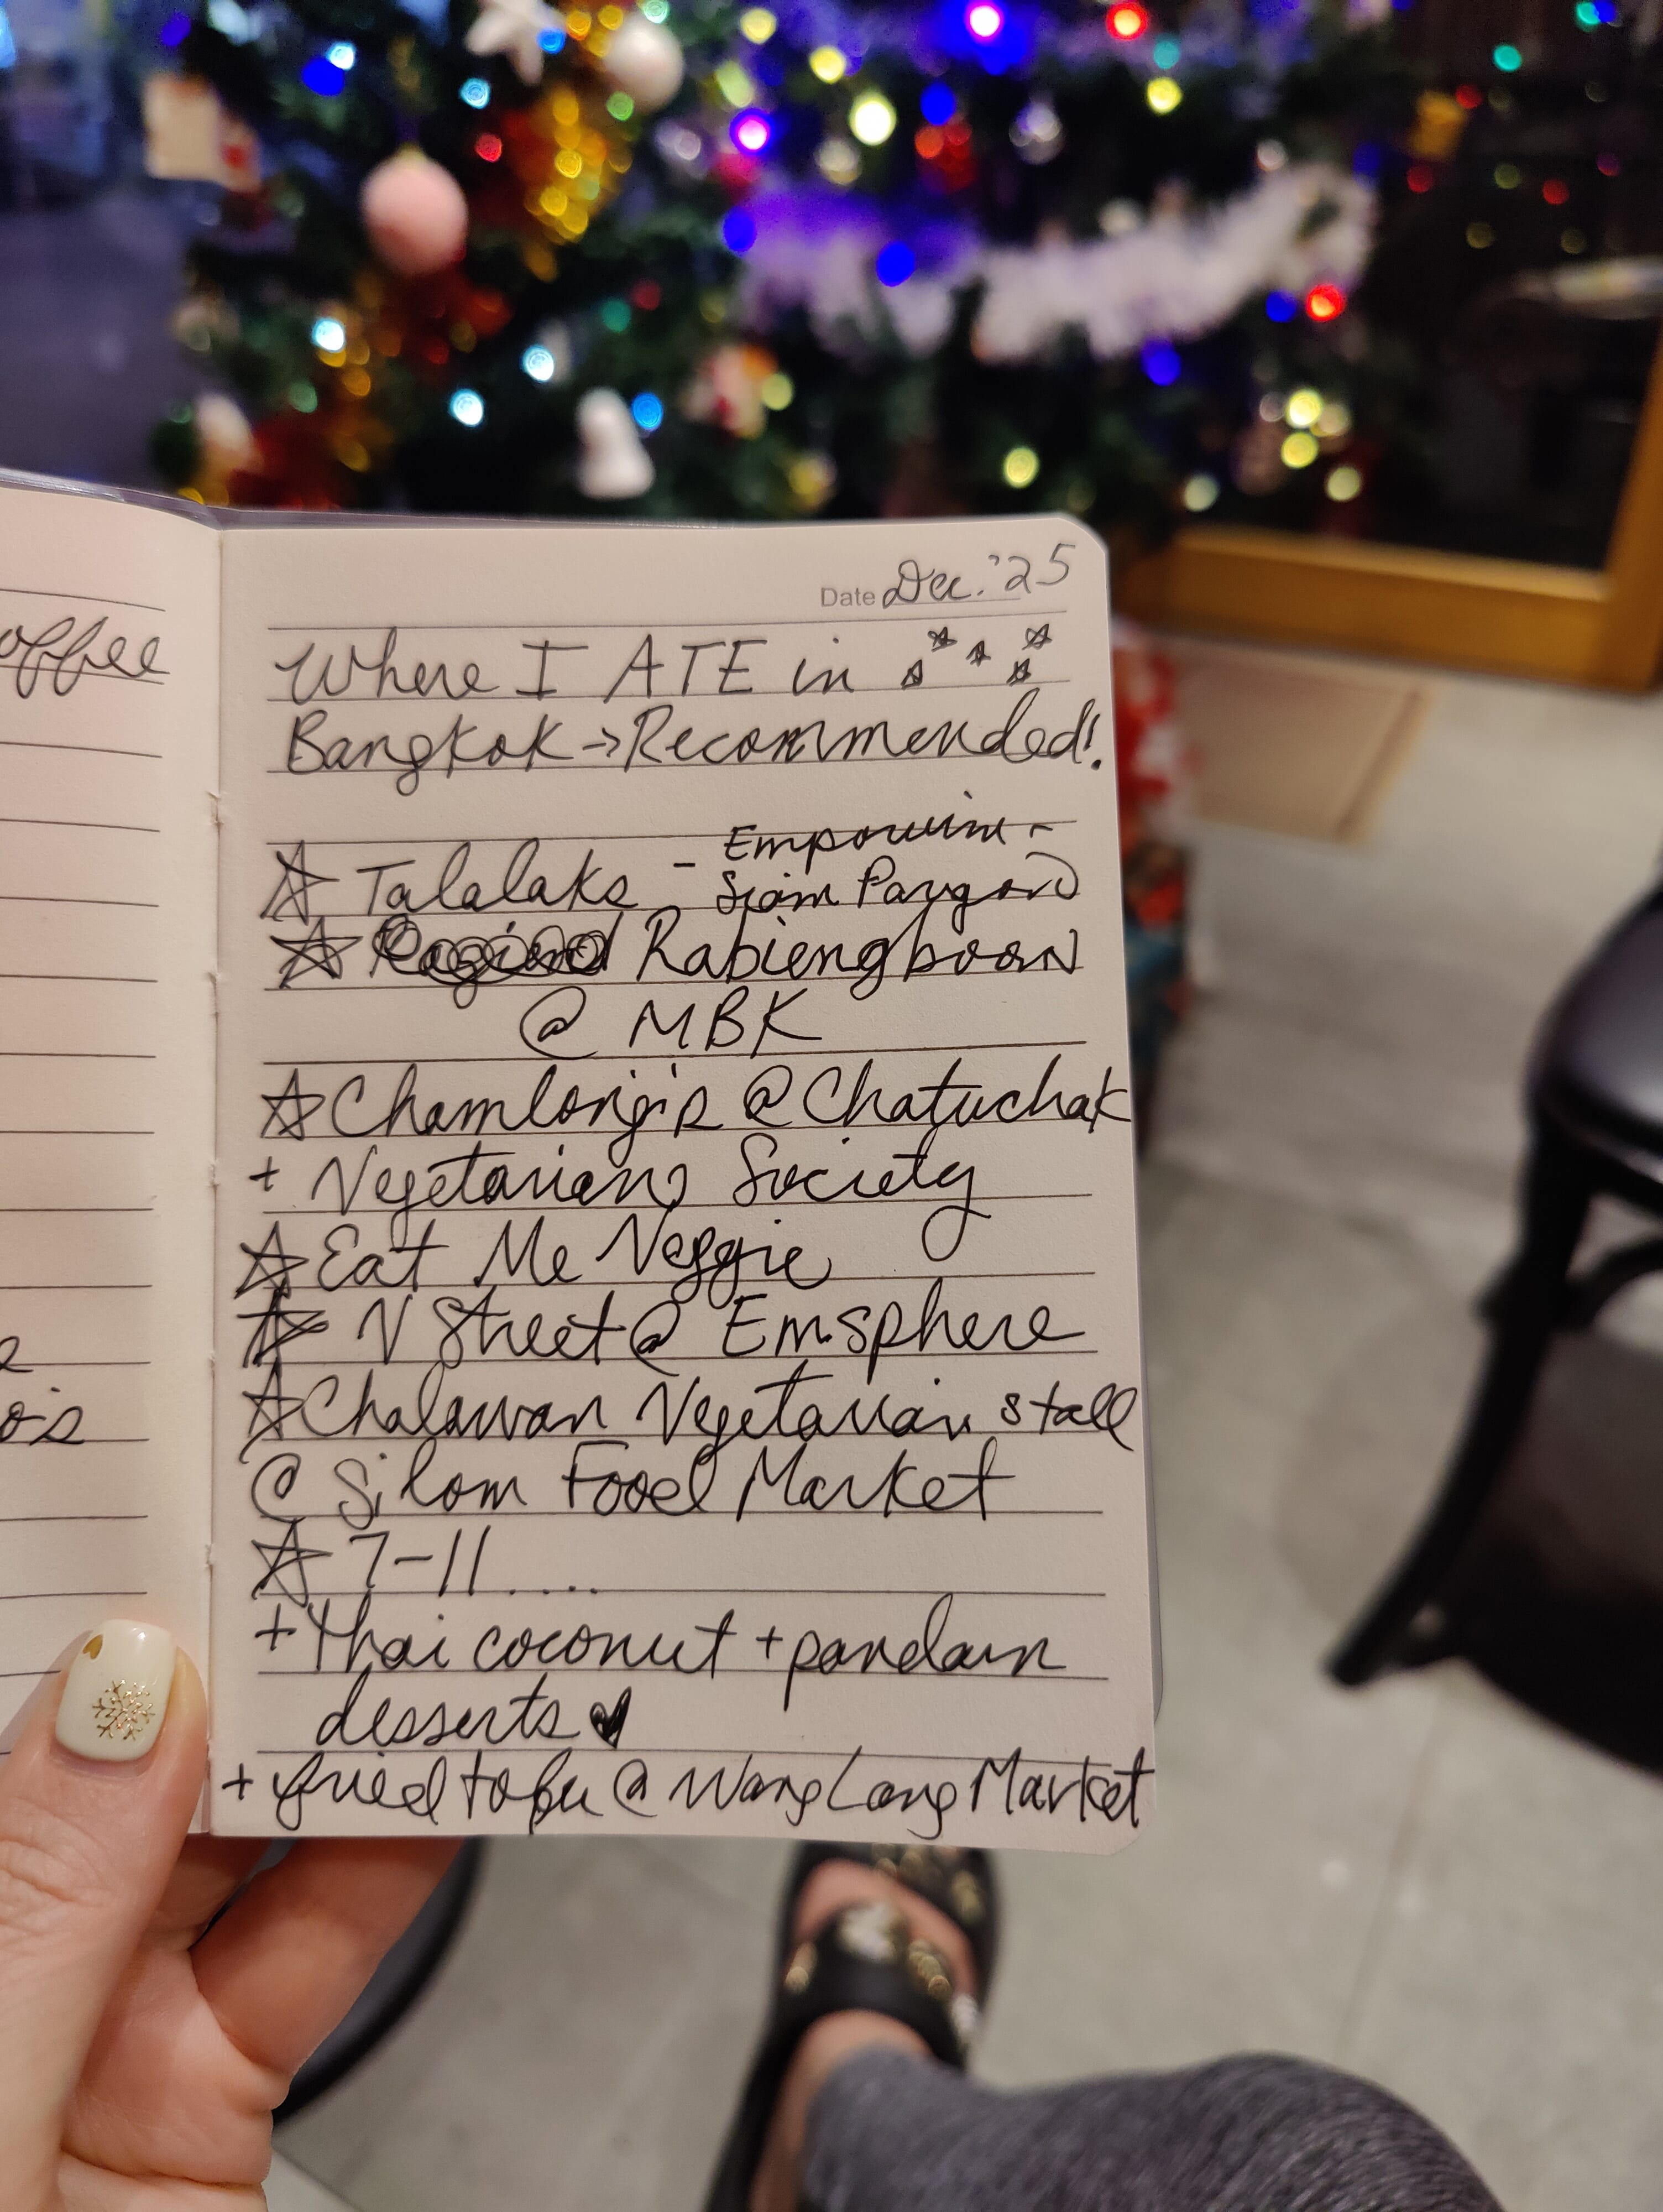 offee
o's
Date Dec. '25
Where I ATE in
Bangkok → Recommended!
☆ Talalaks - Emporium -
Siam Paragon
☆ Rabiengboon
@ MBK
☆ Chamlong's @ Chatuchak
+ Vegetarian Society
☆ Eat Me Veggie
☆ V Street @ Emsphere
☆ Chalawan Vegetarian stall
@ Silom Food Market
☆ 7-11....
+ Thai coconut + pandan
desserts ♥
+ fried tofu @ Wang Lang Market